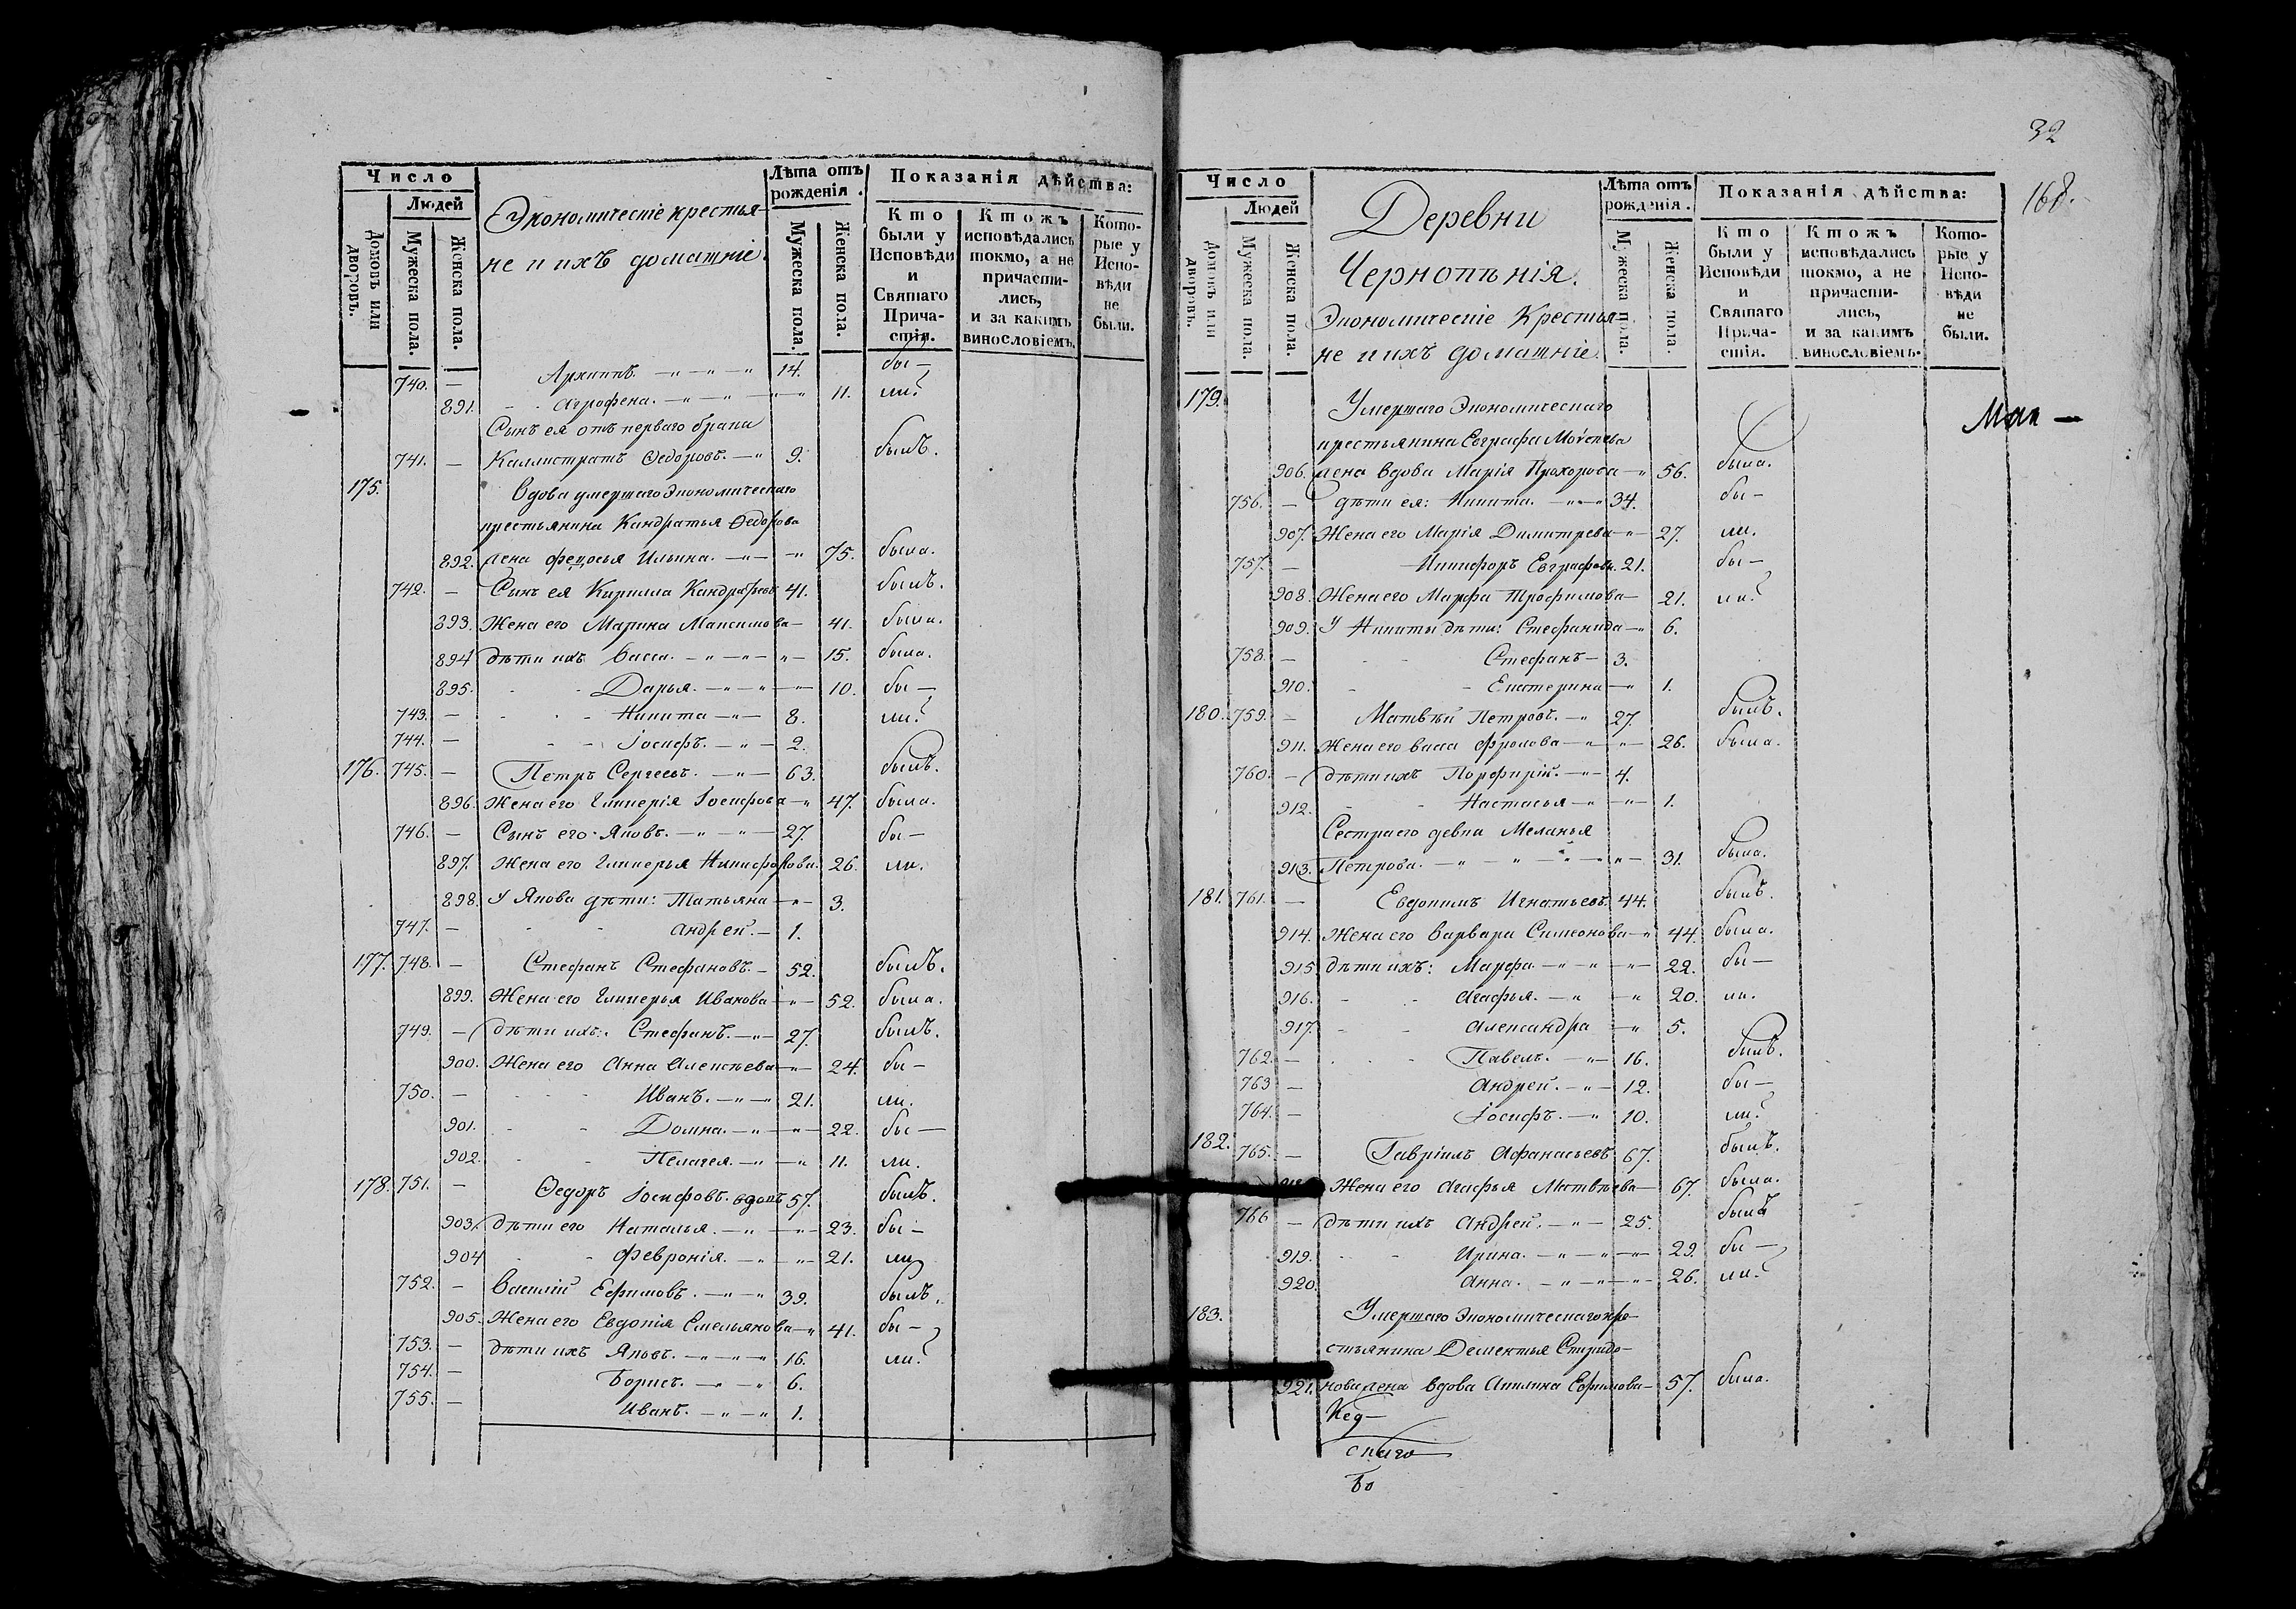 Число
Людей
Домовъ или дворовъ.
Мужеска пола.
Женска пола.
Экономическіе крестья-
не и ихъ домашніе.
Лѣта отъ рожденія.
Мужеска пола.
Женска пола.
Показанія дѣйства:
Кто были у Исповѣди и Святаго Прича-стія.
Ктожъ исповѣдались токмо, а не причасти-лись, и за какимъ винословіемъ.
Кото-рые у Испо-вѣди не были.
740. — Архипъ. 14. бы —
891. Агрофена. 11. ли.
Сынъ ея отъ перваго брака
741. — Каллистратъ Ѳедоровъ. 9. былъ.
175. Вдова умершаго экономическаго
крестьянина Кандратья Ѳедорова
892. жена Федосья Ильина. 75. была.
742. — Сынъ ея Кирилла Кандратьевъ 41. былъ.
893. Жена его Марина Максимова 41. была.
894 дѣти ихъ Васса. 15. была.
895. Дарья. 10. бы —
743. — Никита 8. ли.
744. — Іосифъ. 2.
176. 745. — Петръ Сергеевъ. 63. былъ.
896. Жена его Гликерія Іосифова 47. была.
746. — Сынъ его Яковъ. 27. бы —
897. Жена его Гликерья Никифорова. 26. ли.
898. У Якова дѣти: Татьяна 3.
747. — Андрей. 1.
177. 748. — Стефанъ Стефановъ. 52. былъ.
899. Жена его Гликерья Иванова 52. была.
749. — дѣти ихъ: Стефанъ. 27. былъ.
900. Жена его Анна Алексѣева 24. бы —
750. — Иванъ. 21. ли.
901. Домна. 22. бы —
902. Пелагея. 11. ли.
178. 751. — Ѳедоръ Іосифовъ. вдовъ 57. былъ.
903. дѣти его Наталья. 23. бы —
904 Февронія. 21. ли
752. — Василій Ефимовъ. 39. былъ.
905. Жена его Евдокія Емельянова 41. бы —
753. — дѣти ихъ Яковъ. 16. ли.
754. — Борисъ. 6.
755. — Иванъ. 1.
32
168.
Число
Людей
Домовъ или дворовъ.
Мужеска пола.
Женска пола.
Деревни
Экономическіе Крестья-
не и ихъ домашніе.
Лѣта отъ рожденія.
Мужеска пола.
Женска пола.
Показанія дѣйства:
Кто были у Исповѣди и Святаго Прича-стія.
Ктожъ исповѣдались токмо, а не причасти-лись, и за какимъ винословіемъ.
Кото-рые у Испо-вѣди не были.
179. Умершаго Экономическаго
крестьянина Евграфа
906. жена вдова Марія Прохорова 56. была.
756. — дѣти ея: Никита. 34. бы —
907. Жена его Марія Димитрева 27. ли.
757. — Никифоръ Евграфовъ. 21. бы —
908. Жена его Марфа Трофимова 21. ли.
909. У Никиты дѣти: Стефанида 6.
758. — Стефанъ 3.
910. Екатерина 1.
180. 759. — Матвѣй Петровъ. 27. былъ.
911. Жена его Васса Фролова 26. была.
760. — дѣти ихъ Порфирій. 4.
912. Настасья 1.
Сестра его девка Меланья
913. Петрова. 31. была.
181. 761. — Евдокимъ Игнатьевъ. 44. былъ.
914. Жена его Варвара Симеонова 44. была.
915 дѣти ихъ: Марфа. 22. бы —
916. Агафья. 20. ли.
917. Александра 5.
762. — Павелъ. 16. былъ.
763 — Андрей. 12. бы —
764. — Іосифъ. 10. ли.
182. 765. — Гавріилъ Афанасьевъ 67. былъ.
Жена его Агафья Матвѣева 67. была.
766 — дѣти ихъ Андрей. 25. былъ
919. Ирина. 29. бы —
920. Анна. 26. ли.
183. Умершаго Экономическаго кре-
стьянина Дементья Спиридо-
921. нова жена вдова Акилина Ефимова 57. была.